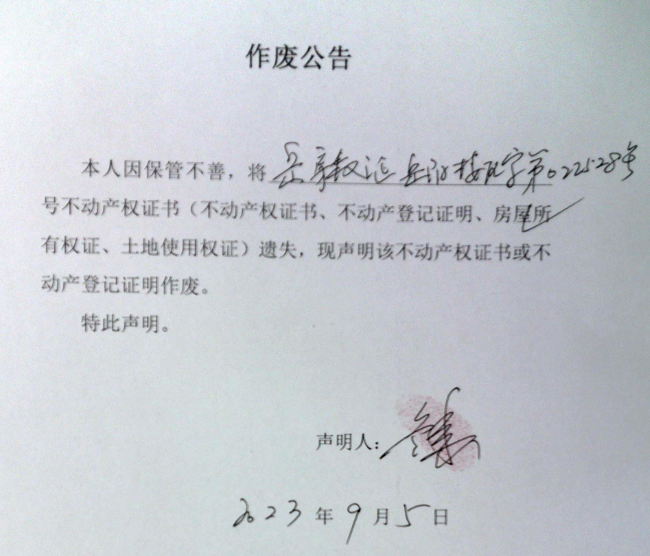 作废公告
本人因保管不善，将 岳房权证岳 字第022528号
号不动产权证书（不动产权证书、不动产登记证明、房屋所
有权证、土地使用权证）遗失，现声明该不动产权证书或不
动产登记证明作废。
特此声明。
声明人：
2023年9月5日